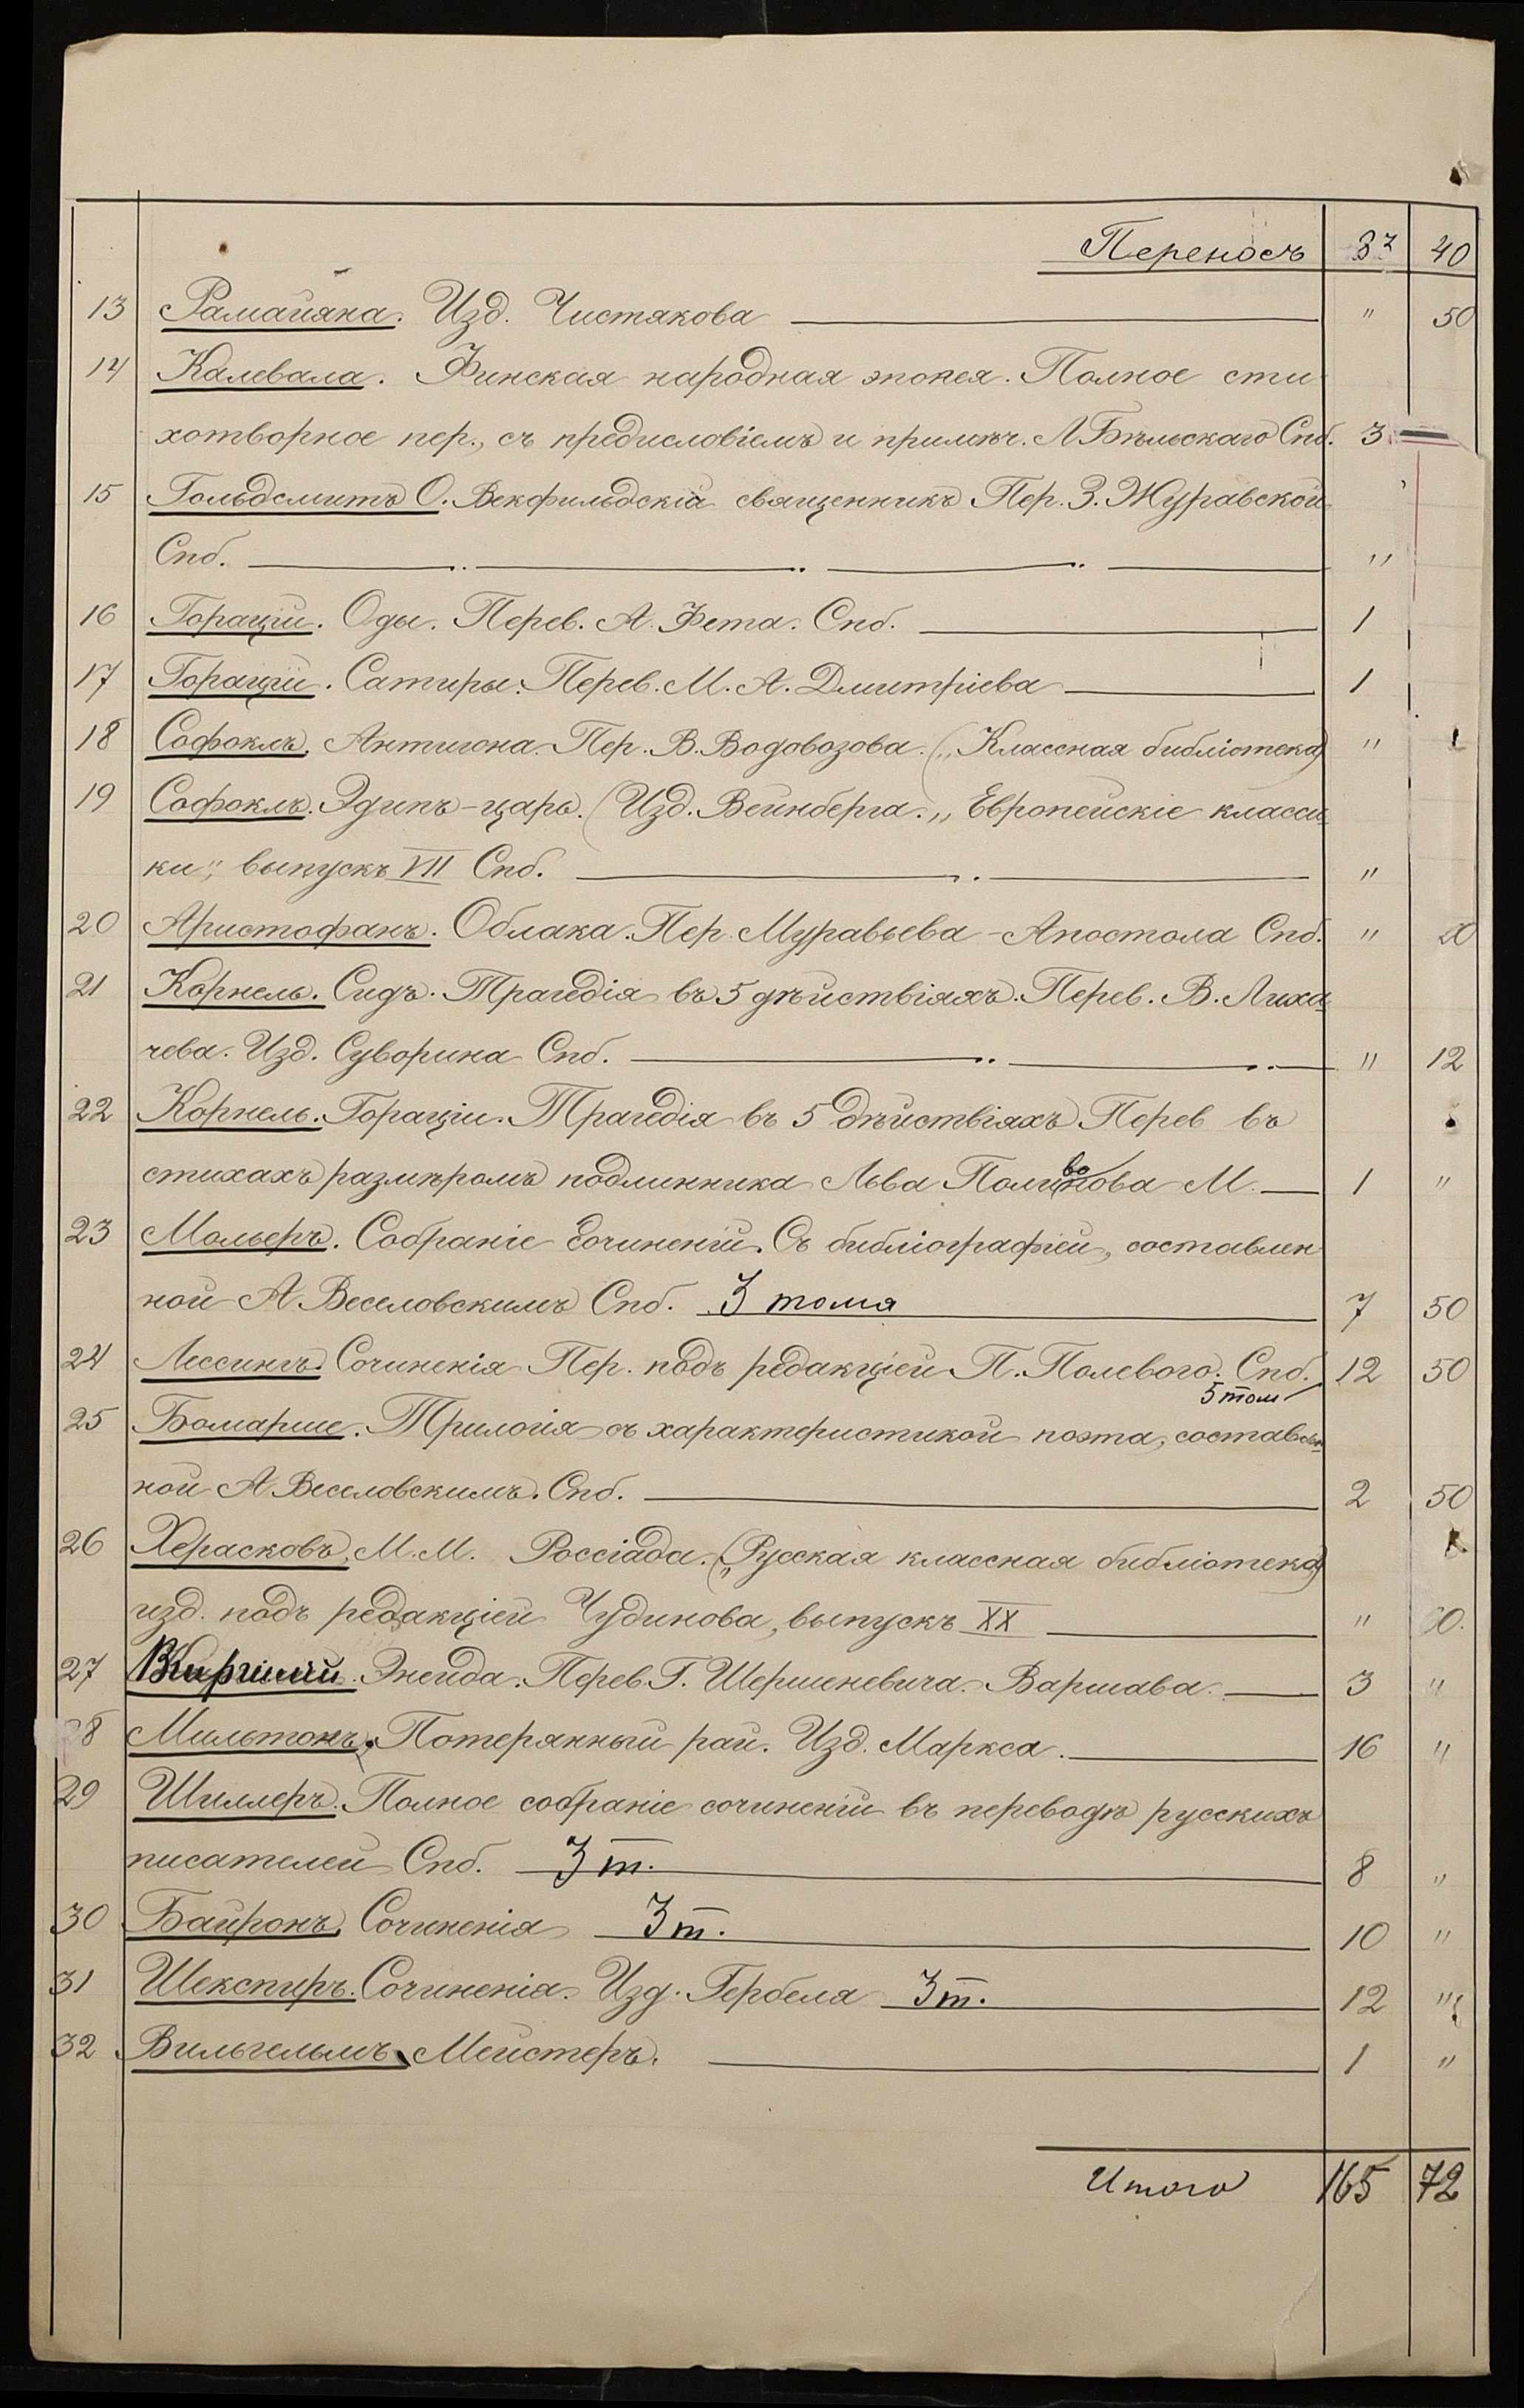 Переносъ 87 40
13 Рамайяна. Изд. Чистякова " 50
14 Калевала. Финская народная эпопея. Полное сти
хотворное пер., съ предисловіемъ и примѣч. Л Бѣльскаго Спб. 3
15 Гольдсмитъ О. Векфильдскій священникъ Пер. З. Журавской
Спб. "
16 Горацій. Оды. Перев. А. Фета. Спб. 1
17 Горацій. Сатиры. Перев. М. А. Дмитріева 1
18 Софоклъ. Антигона. Пер. В. Водовозова. („Классная библіотека) "
19 Софоклъ. Эдипъ-царь. (Изд. Вейнберга. „Европейскіе класси
ки", выпускъ VII Спб. "
20 Аристофанъ. Облака. Пер. Муравьева-Апостола Спб. " 20
21 Корнель. Сидъ. Трагедія въ 5 дѣйствіяхъ. Перев. В. Лиха
чева. Изд. Суворина Спб. " 12
22 Корнель. Горацій. Трагедія въ 5 дѣйствіяхъ Перев въ
стихахъ размѣромъ подлинника Льва Поливанова М. 1 "
23 Мольеръ. Собраніе сочиненій. Съ библіографіей, составлен
ной А Веселовскимъ Спб. 3 тома 7 50
24 Лессингъ. Сочиненія Пер. подъ редакціей П. Полевого. Спб. 12 50
5 том
25 Бомарше. Трилогія съ характеристикой поэта, составлен
ной А Веселовскимъ. Спб. 2 50
26 Херасковъ, М. М. Россіада. („Русская классная библіотека)
изд. подъ редакціей Чудинова, выпускъ XX "
27 Виргилій. Энеида. Перев. Г. Шершеневича. Варшава. 3 "
28 Мильтонъ. Потерянный рай. Изд. Маркса. 16 "
29 Шиллеръ. Полное собраніе сочиненій въ переводѣ русскихъ
писателей Спб. 3 т. 8 "
30 Байронъ. Сочиненія 3 т. 10 "
31 Шекспиръ. Сочиненія. Изд. Гербеля 3 т. 12 "
32 Вильгельмъ Мейстеръ. 1 "
Итого 165 72